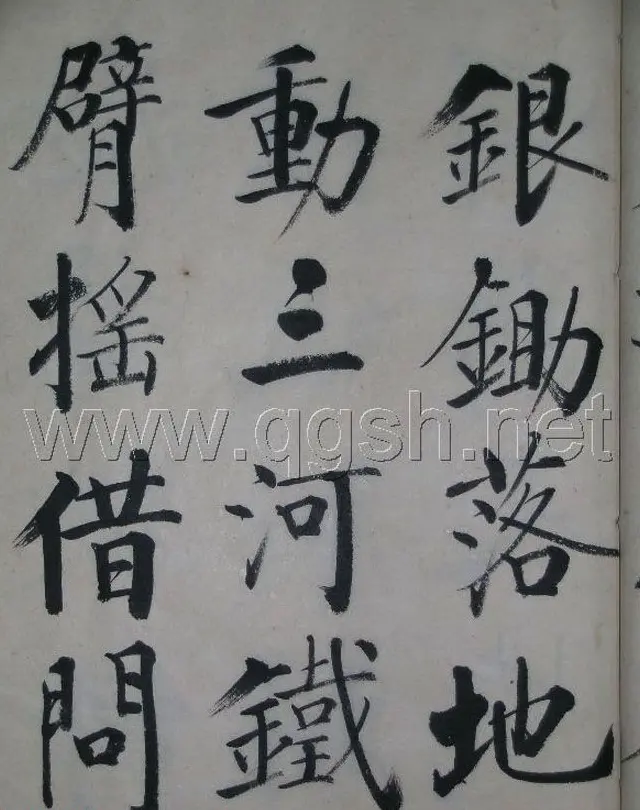 銀鋤落地
動三河鐵
臂摇借問
www.qgsh.net